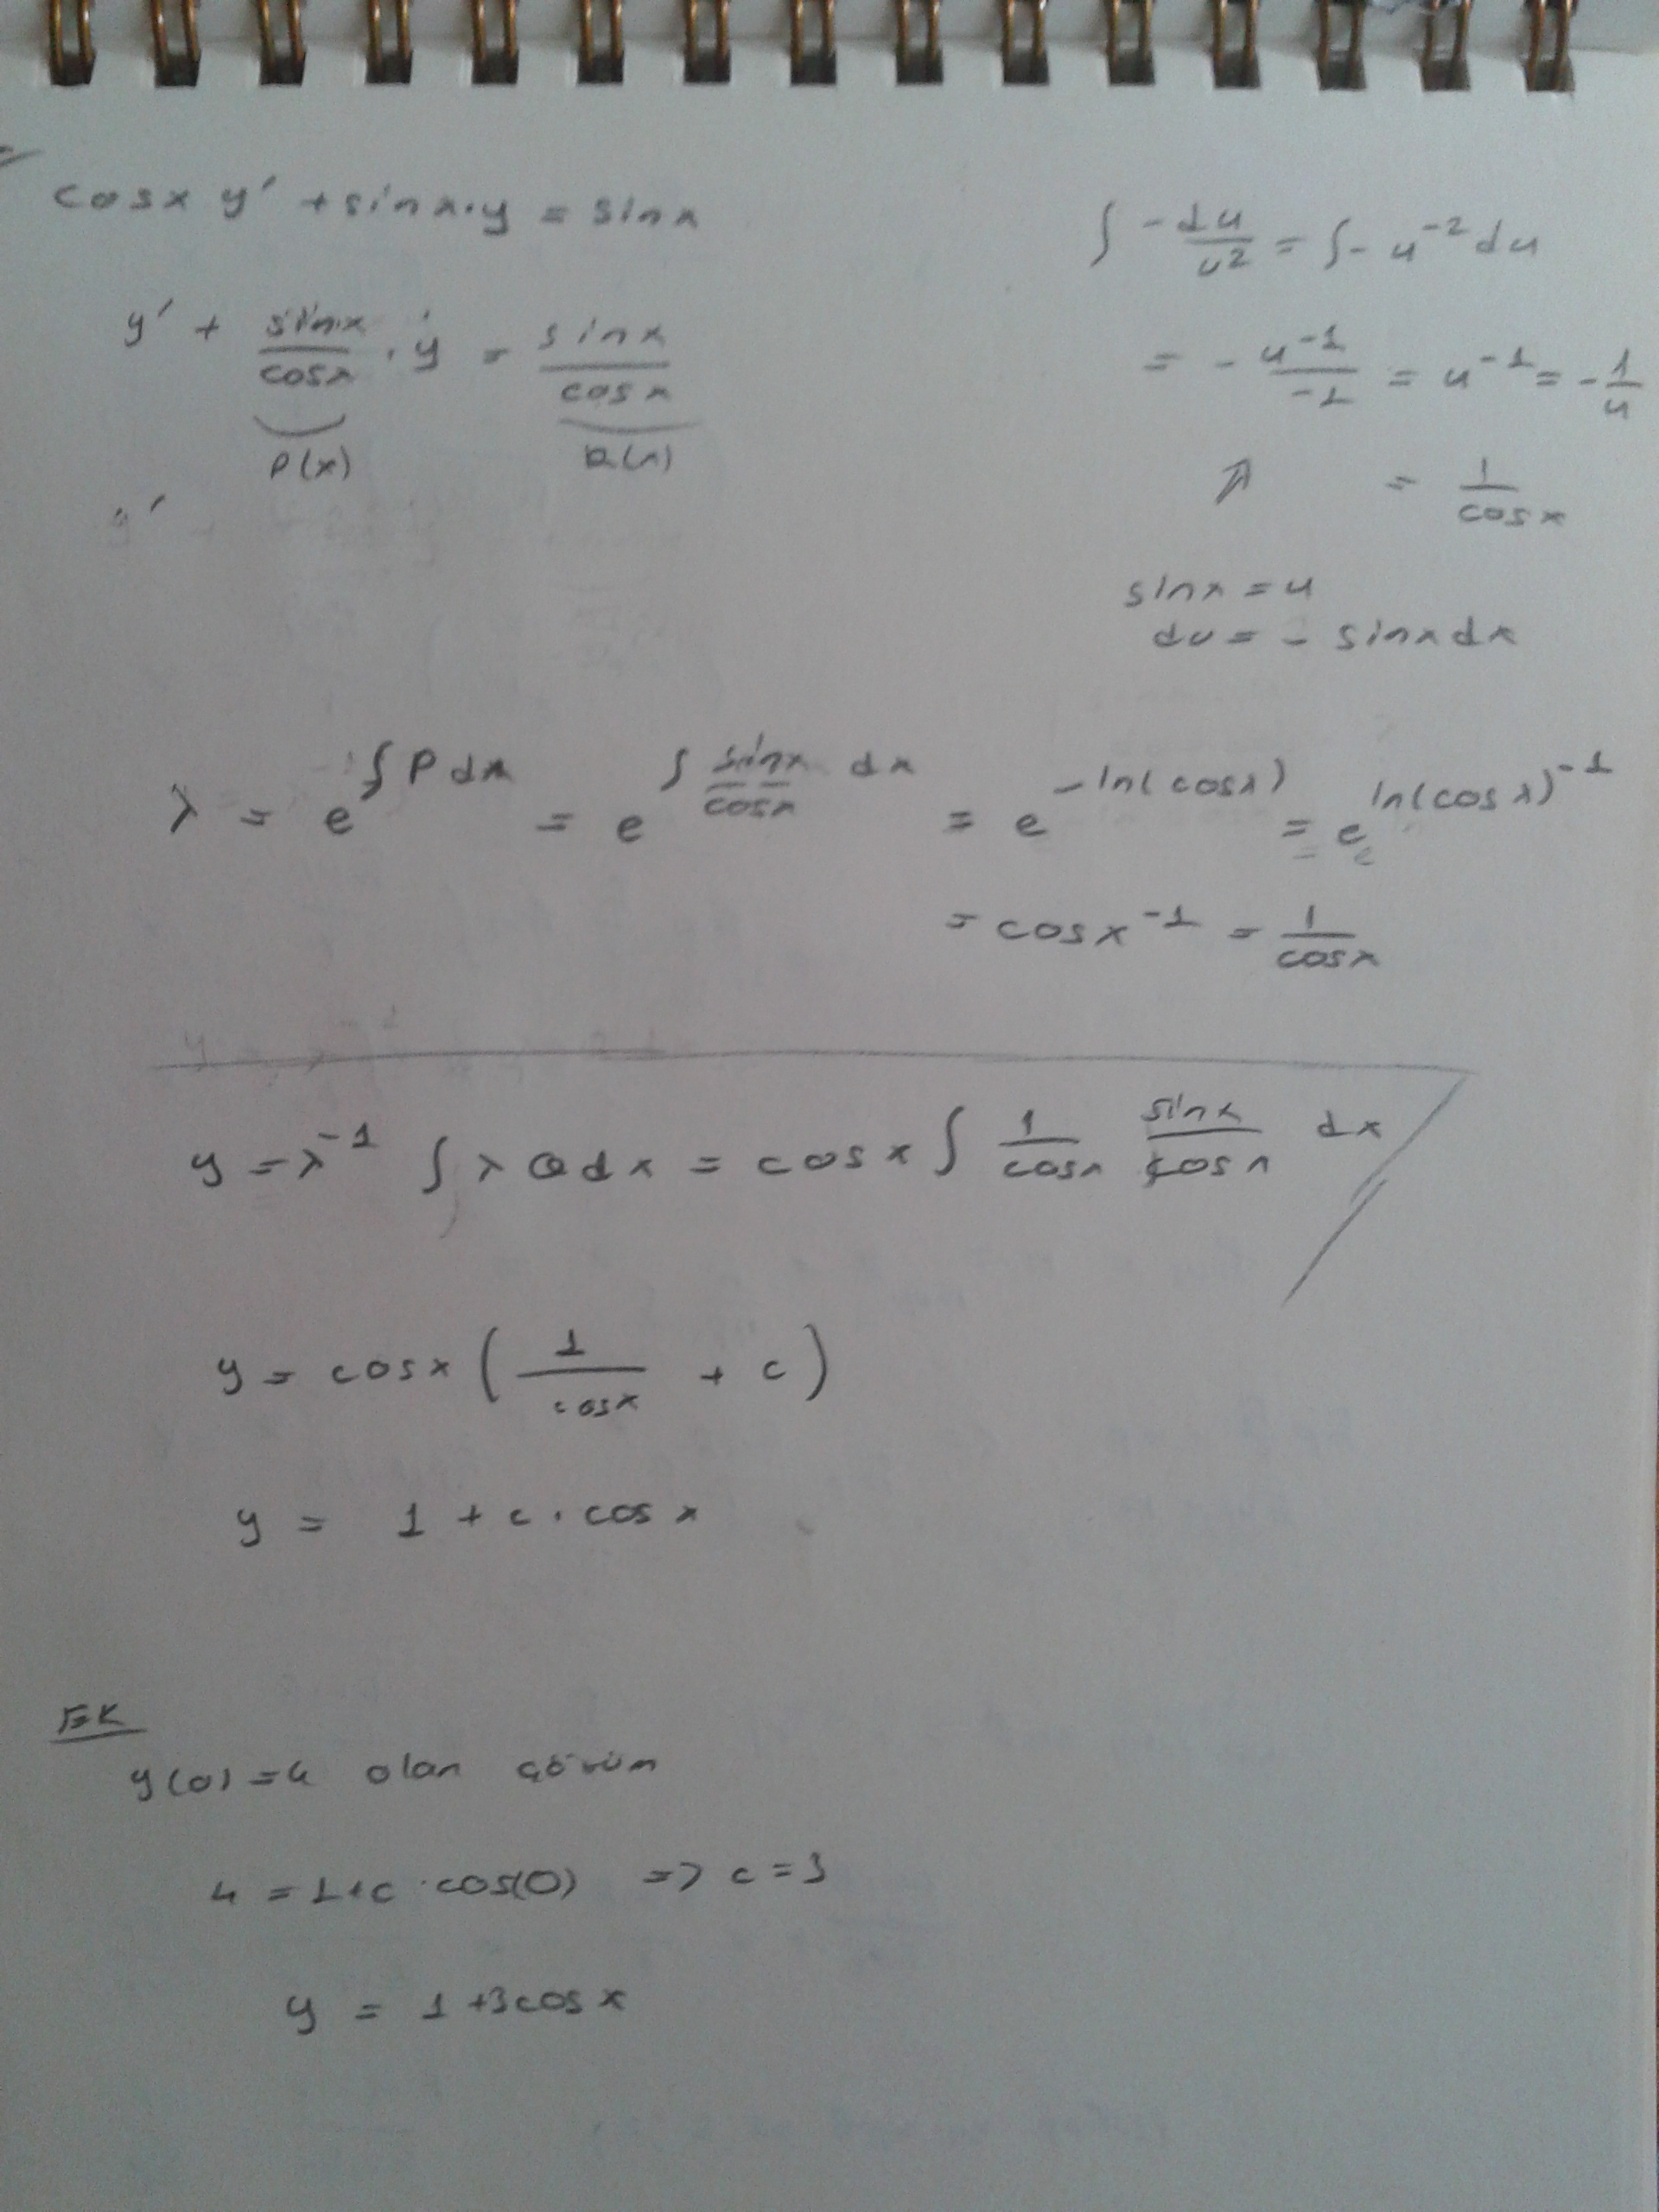 cosx y' + sinx.y = sinx
y' + sinx/cosx . y = sinx/cosx
P(x) Q(x)
y'
∫ -du/u2 = ∫- u^-2 du
= - u^-1/-1 = u^-1 = -1/u
↗ = 1/cosx
sinx = u
du = - sinxdx
λ = e^∫Pdx = e^∫ sinx/cosx dx = e^-ln(cosx) = e^ln(cosx)^-1
= cosx^-1 = 1/cosx
y = λ^-1 ∫ λ Q dx = cosx ∫ 1/cosx sinx/cosx dx
y = cosx ( 1/cosx + c )
y = 1 + c . cosx
EK
y(0) = 4 olan çözüm
4 = 1+c . cos(0) => c = 3
y = 1 +3cosx